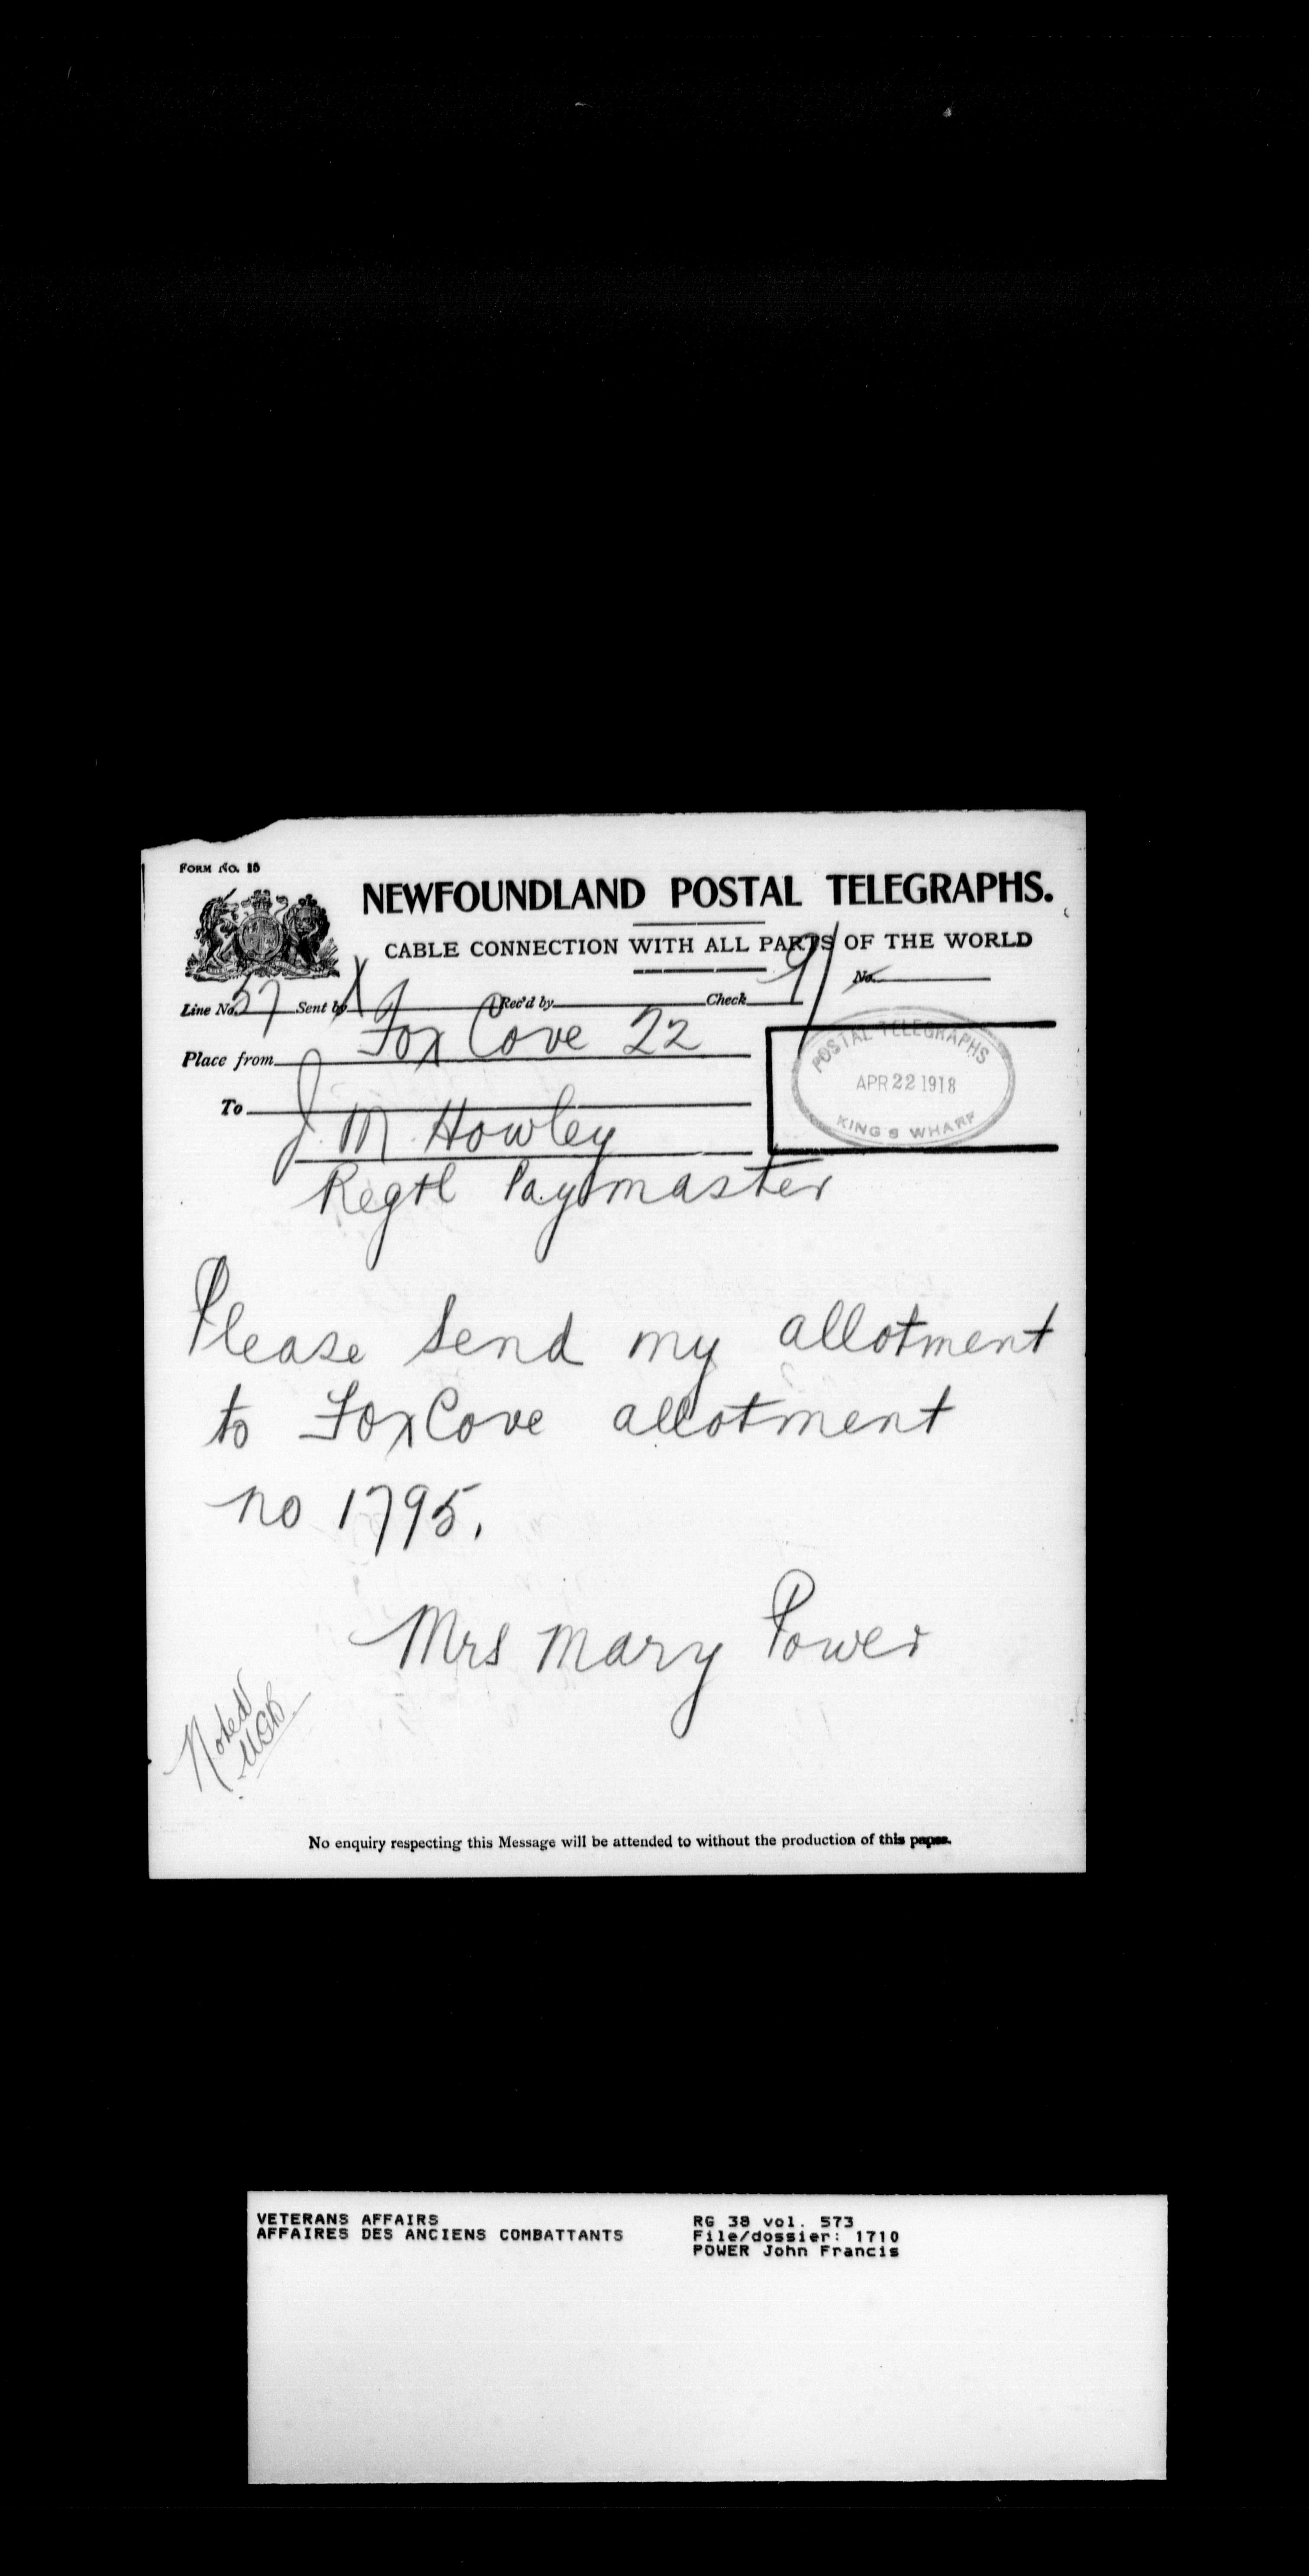 FORM No. 16
NEWFOUNDLAND POSTAL TELEGRAPHS.
CABLE CONNECTION WITH ALL PARTS OF THE WORLD
No.
Line No. 57 Sent by Rec'd by Check 9/
Place from Fox Cove 22
POSTAL TELEGRAPHS
APR 22 1918
KING'S WHARF
To J. M. Howley
Regtl Paymaster
Please send my allotment
to Fox Cove allotment
no 1795.
Mrs Mary Power
Noted
No enquiry respecting this Message will be attended to without the production of this paper.
VETERANS AFFAIRS
AFFAIRES DES ANCIENS COMBATTANTS
RG 38 vol. 573
File/dossier: 1710
POWER John Francis